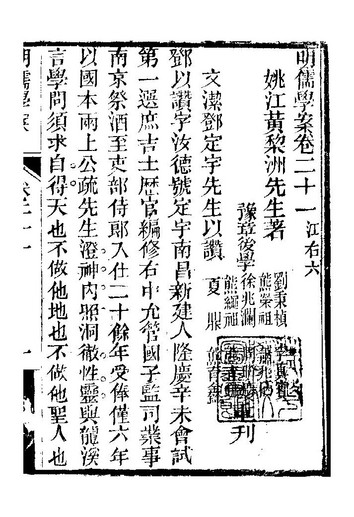 明儒學案卷二十一 江右六
姚江黃黎洲先生著
豫章後學
劉秉楨
熊榮祖
徐兆瀾
熊繩祖
夏鼎
刊
文潔鄧定宇先生以讚
鄧以讚字汝德號定宇南昌新建人隆慶辛未會試
第一選庶吉士歷官編修右中允管國子監司業事
南京祭酒至吏部侍郎入仕二十餘年受俸僅六年
以國本兩上公疏先生澄神內照洞徹性靈與龍溪
言學問須求自得天也不做他地也不做他聖人也
明儒學案